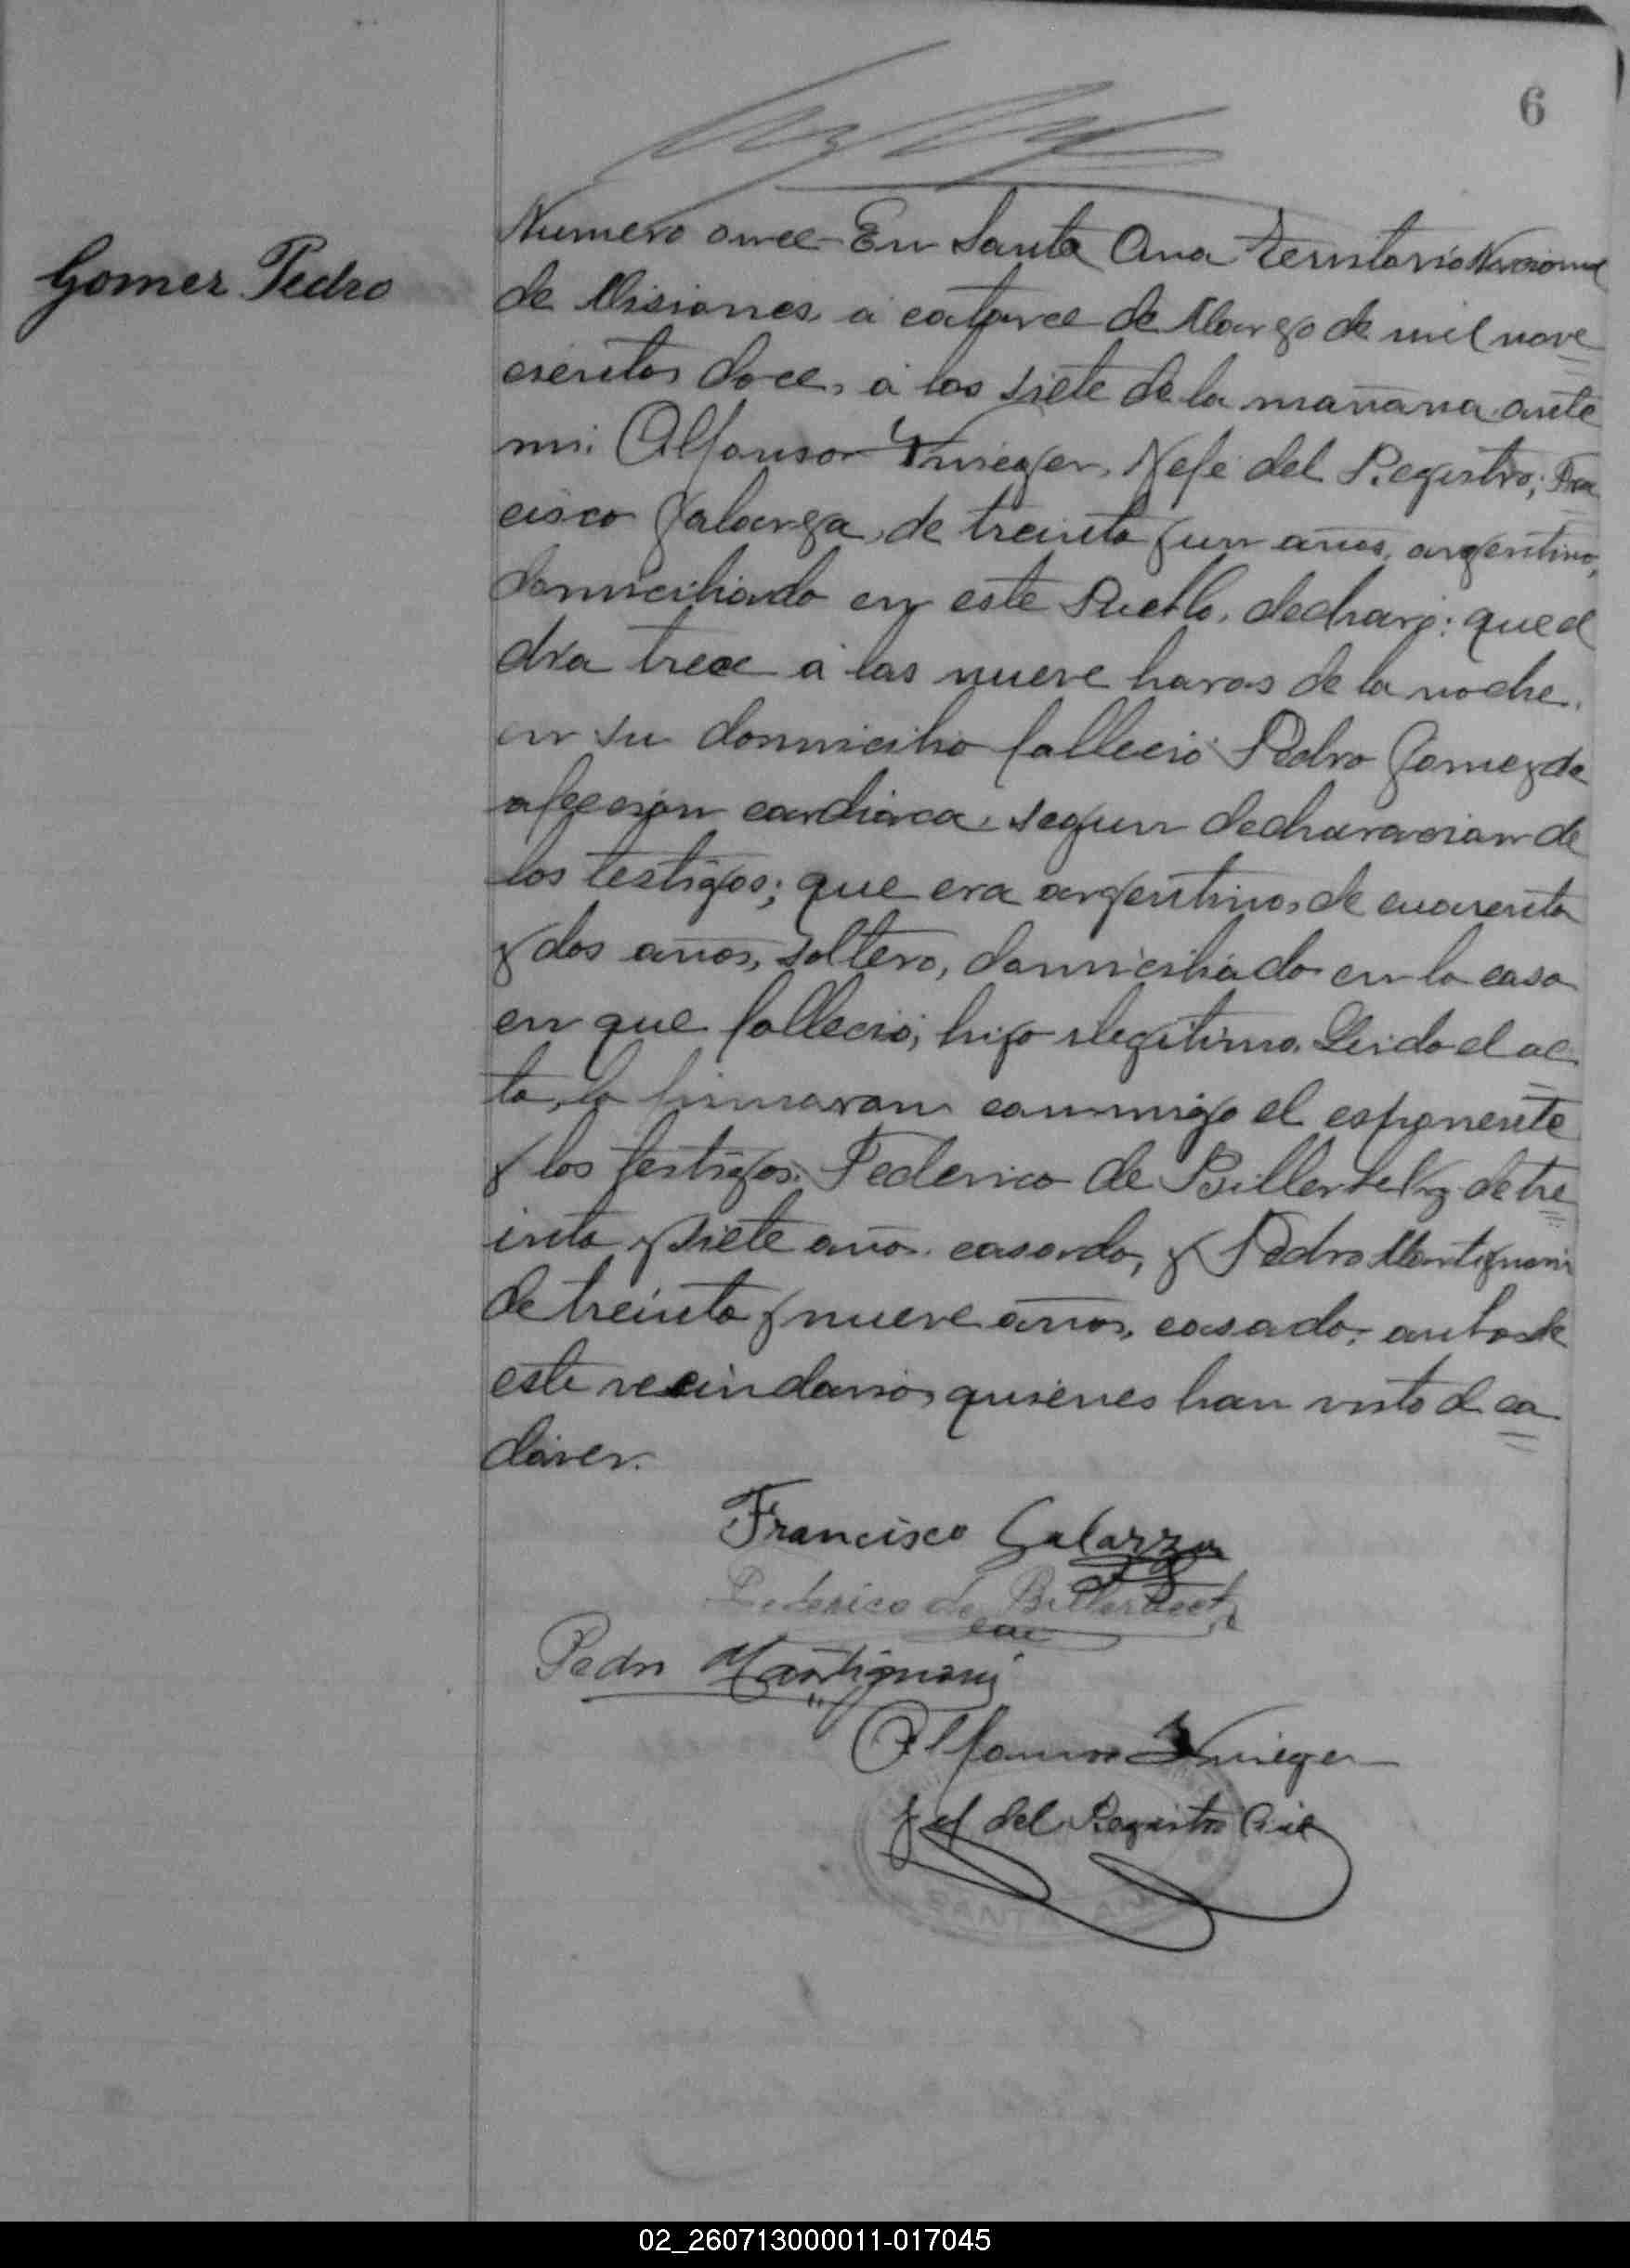 6
Gomez Pedro
Numero once En Santa Ana Territorio Nacional
de Misiones, á catorce de Marzo de mil nove
cientos doce, á las siete de la mañana ante
mi: Alfonso Krieger, Jefe del Registro; Fran
cisco Galarza, de treinta y un años, argentino,
domiciliado en este Pueblo, declaró: que el
dia trece á las nueve horas de la noche,
en su domicilio falleció Pedro Gomez de
afección cardiaca, segun declaracion de
los testigos; que era argentino, de cuarenta
y dos años, soltero, domiciliado en la casa
en que falleció; hijo ilegitimo. Leido el ac
ta, la firmaron conmigo el esponente
y los testigos: Federico de Billerbeck, de tre
inta y siete años casado, y Pedro Mantignani
de treinta y nueve años, casado; ambos de
este vecindario, quienes han visto el ca
dáver.
Francisco Galarza
Federico de Billerbeck
Pedro Mantignani
Alfonso Krieger
Jef del Registro Civil
SANTA ANA
02_260713000011-017045